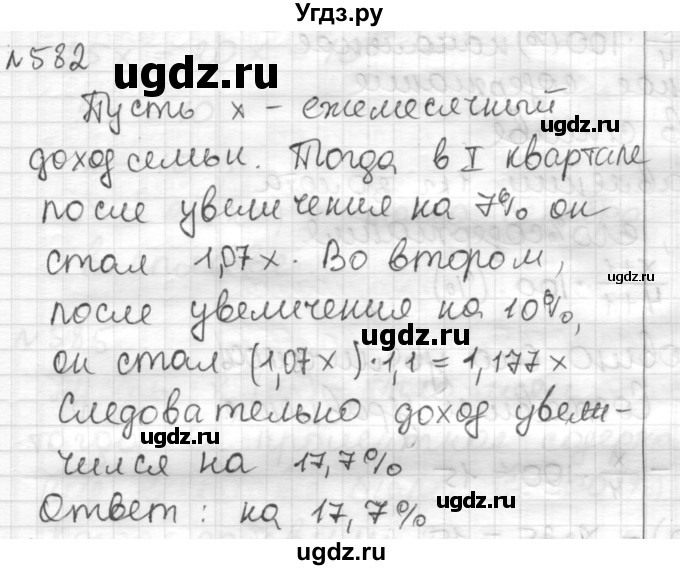 Угдз.ру
№582
ugdz.ru
Пусть x - ежемесячный
ugdz.ru
доход семьи. Тогда в I квартале
после увеличения на 7% он
ugdz.ru
стал 1,07x. Во втором,
ugdz.ru
после увеличения на 10%,
ugdz.ru
он стал (1,07x)·1,1=1,177x
Следовательно доход увели-
ugdz.ru
чился на 17,7%
ugdz.ru
Ответ: на 17,7%
ugdz.ru